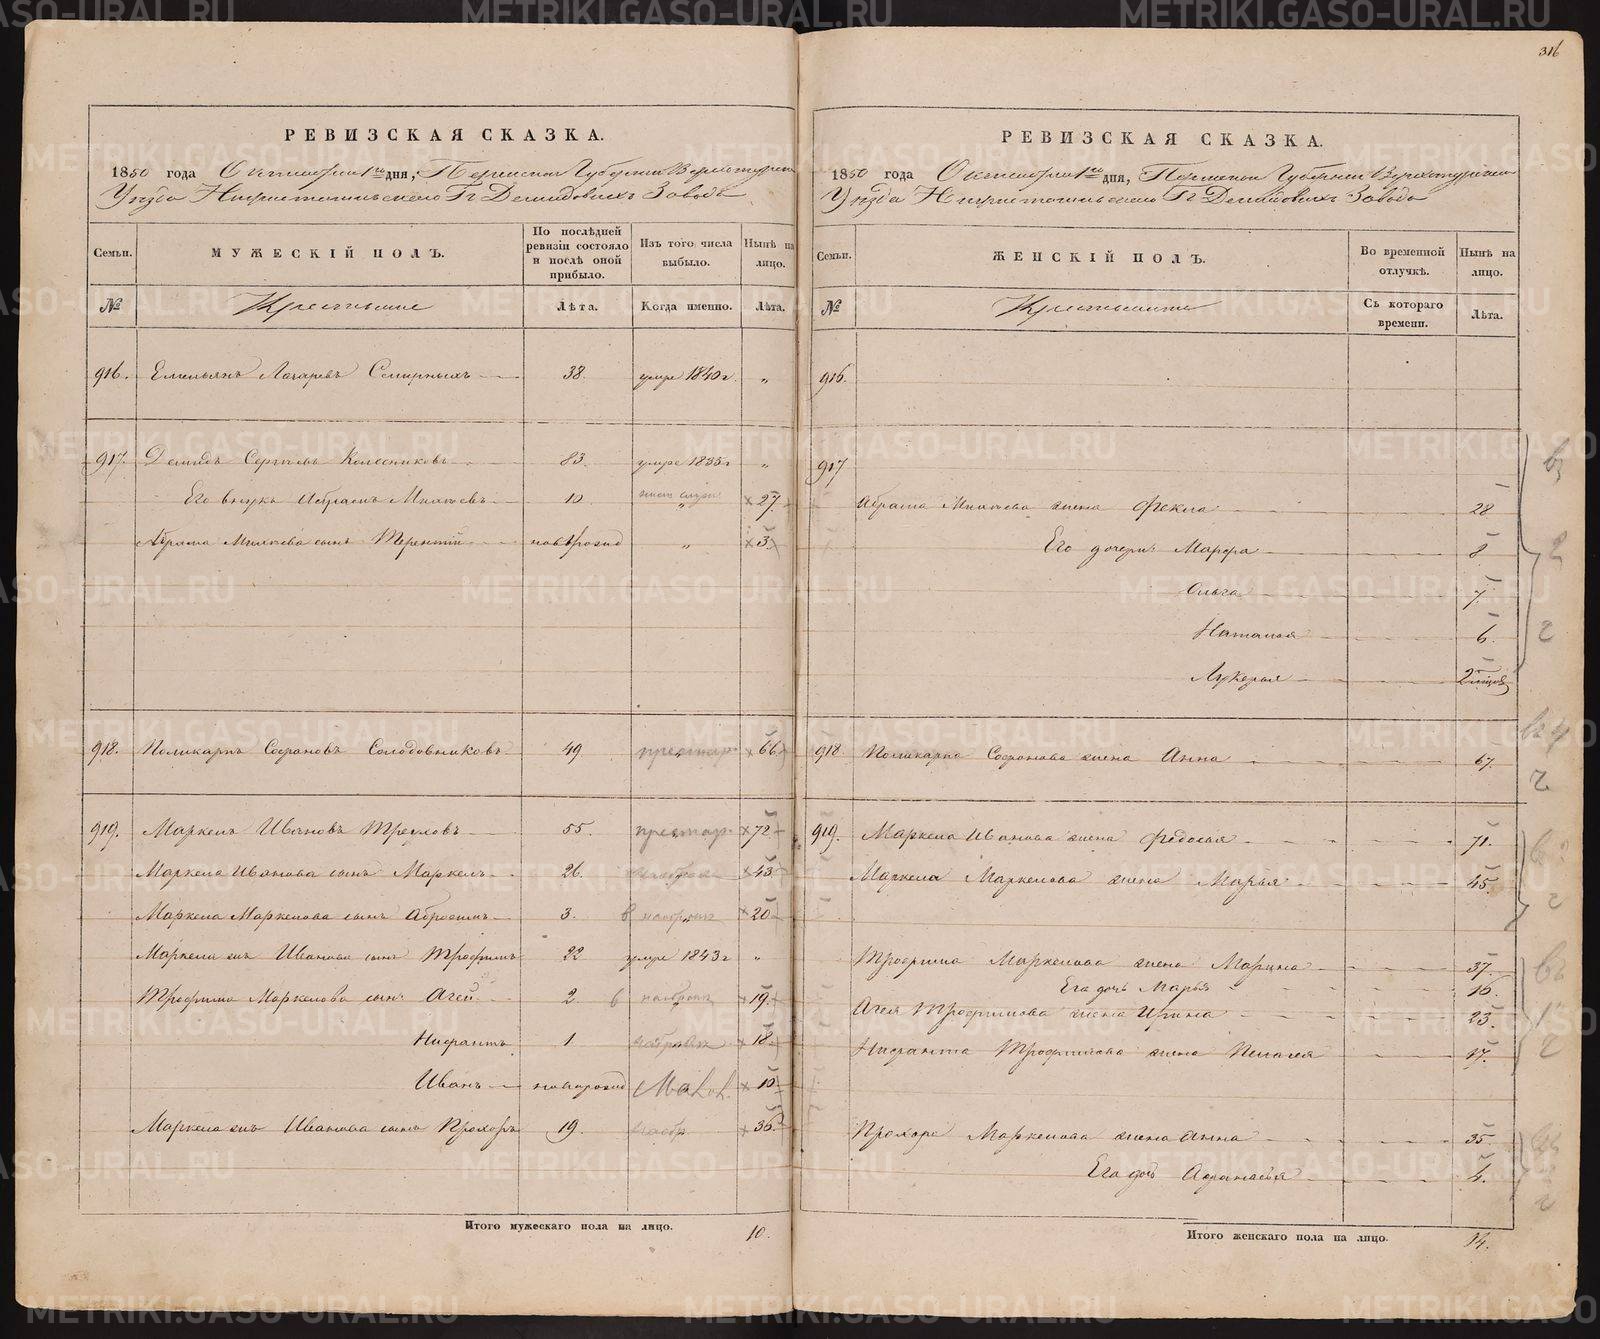 316
РЕВИЗСКАЯ СКАЗКА.
1850 года Октября 1го дня, Пермской Губернии Верхотурскаго
Уѣзда Нижнетагильскаго Гг Демидовыхъ Завода
Семьи. МУЖЕСКІЙ ПОЛЪ. По послѣдней ревизіи состояло и послѣ оной прибыло. Изъ того числа выбыло. Нынѣ на лицо.
№ Крестьяне Лѣта. Когда именно. Лѣта.
916. Емельянъ Лазаревъ Смирныхъ 38. умре 1840 г. „
917. Демидъ Сергѣевъ Колесниковъ 83. умре 1835 г „
Его внукъ Абрамъ Михѣевъ 10 „ 27.
Абрама Михѣева сынъ Терентій новорожд „ 3.
918. Поликарпъ Софроновъ Солодовниковъ 49. престар. 66.
919. Маркелъ Ивановъ Треуховъ 55. престар. 72
Маркела Иванова сынъ Маркелъ 26. 43
Маркела Маркелова сынъ Абросимъ 3. 20
Маркела же Иванова сынъ Трофимъ 22 умре 1843 г „
Трофима Маркелова сынъ Агей 2. 19.
Нифантъ 1 18.
Иванъ новорожд Мал. 10
Маркела же Иванова сынъ Прохоръ 19. 36.
Итого мужескаго пола на лицо. 10.
РЕВИЗСКАЯ СКАЗКА.
1850 года Октября 1го дня, Пермской Губерніи Верхотурскаго
Уѣзда Нижнетагильскаго Гг Демидовыхъ Завода
Семьи. ЖЕНСКІЙ ПОЛЪ. Во временной отлучкѣ. Нынѣ на лицо.
№ Крестьянки Съ котораго времени. Лѣта.
916.
917
Абрама Михѣева жена Фекла 28
Его дочери: Марфа 8
Ольга 7.
Наталья 6.
Лукерья 2 мѣсяц
918 Поликарпа Софронова жена Анна 67.
919. Маркела Иванова жена Федосья 71.
Маркела Маркелова жена Марья 45.
Трофима Маркелова жена Марина 37.
Его дочь Марья 16.
Агея Трофимова жена Ирина 23.
Нифанта Трофимова жена Пелагея 17.
Прохора Маркелова жена Анна 35
Его дочь Афанасья 4.
Итого женскаго пола на лицо. 14.
METRIKI.GASO-URAL.RU